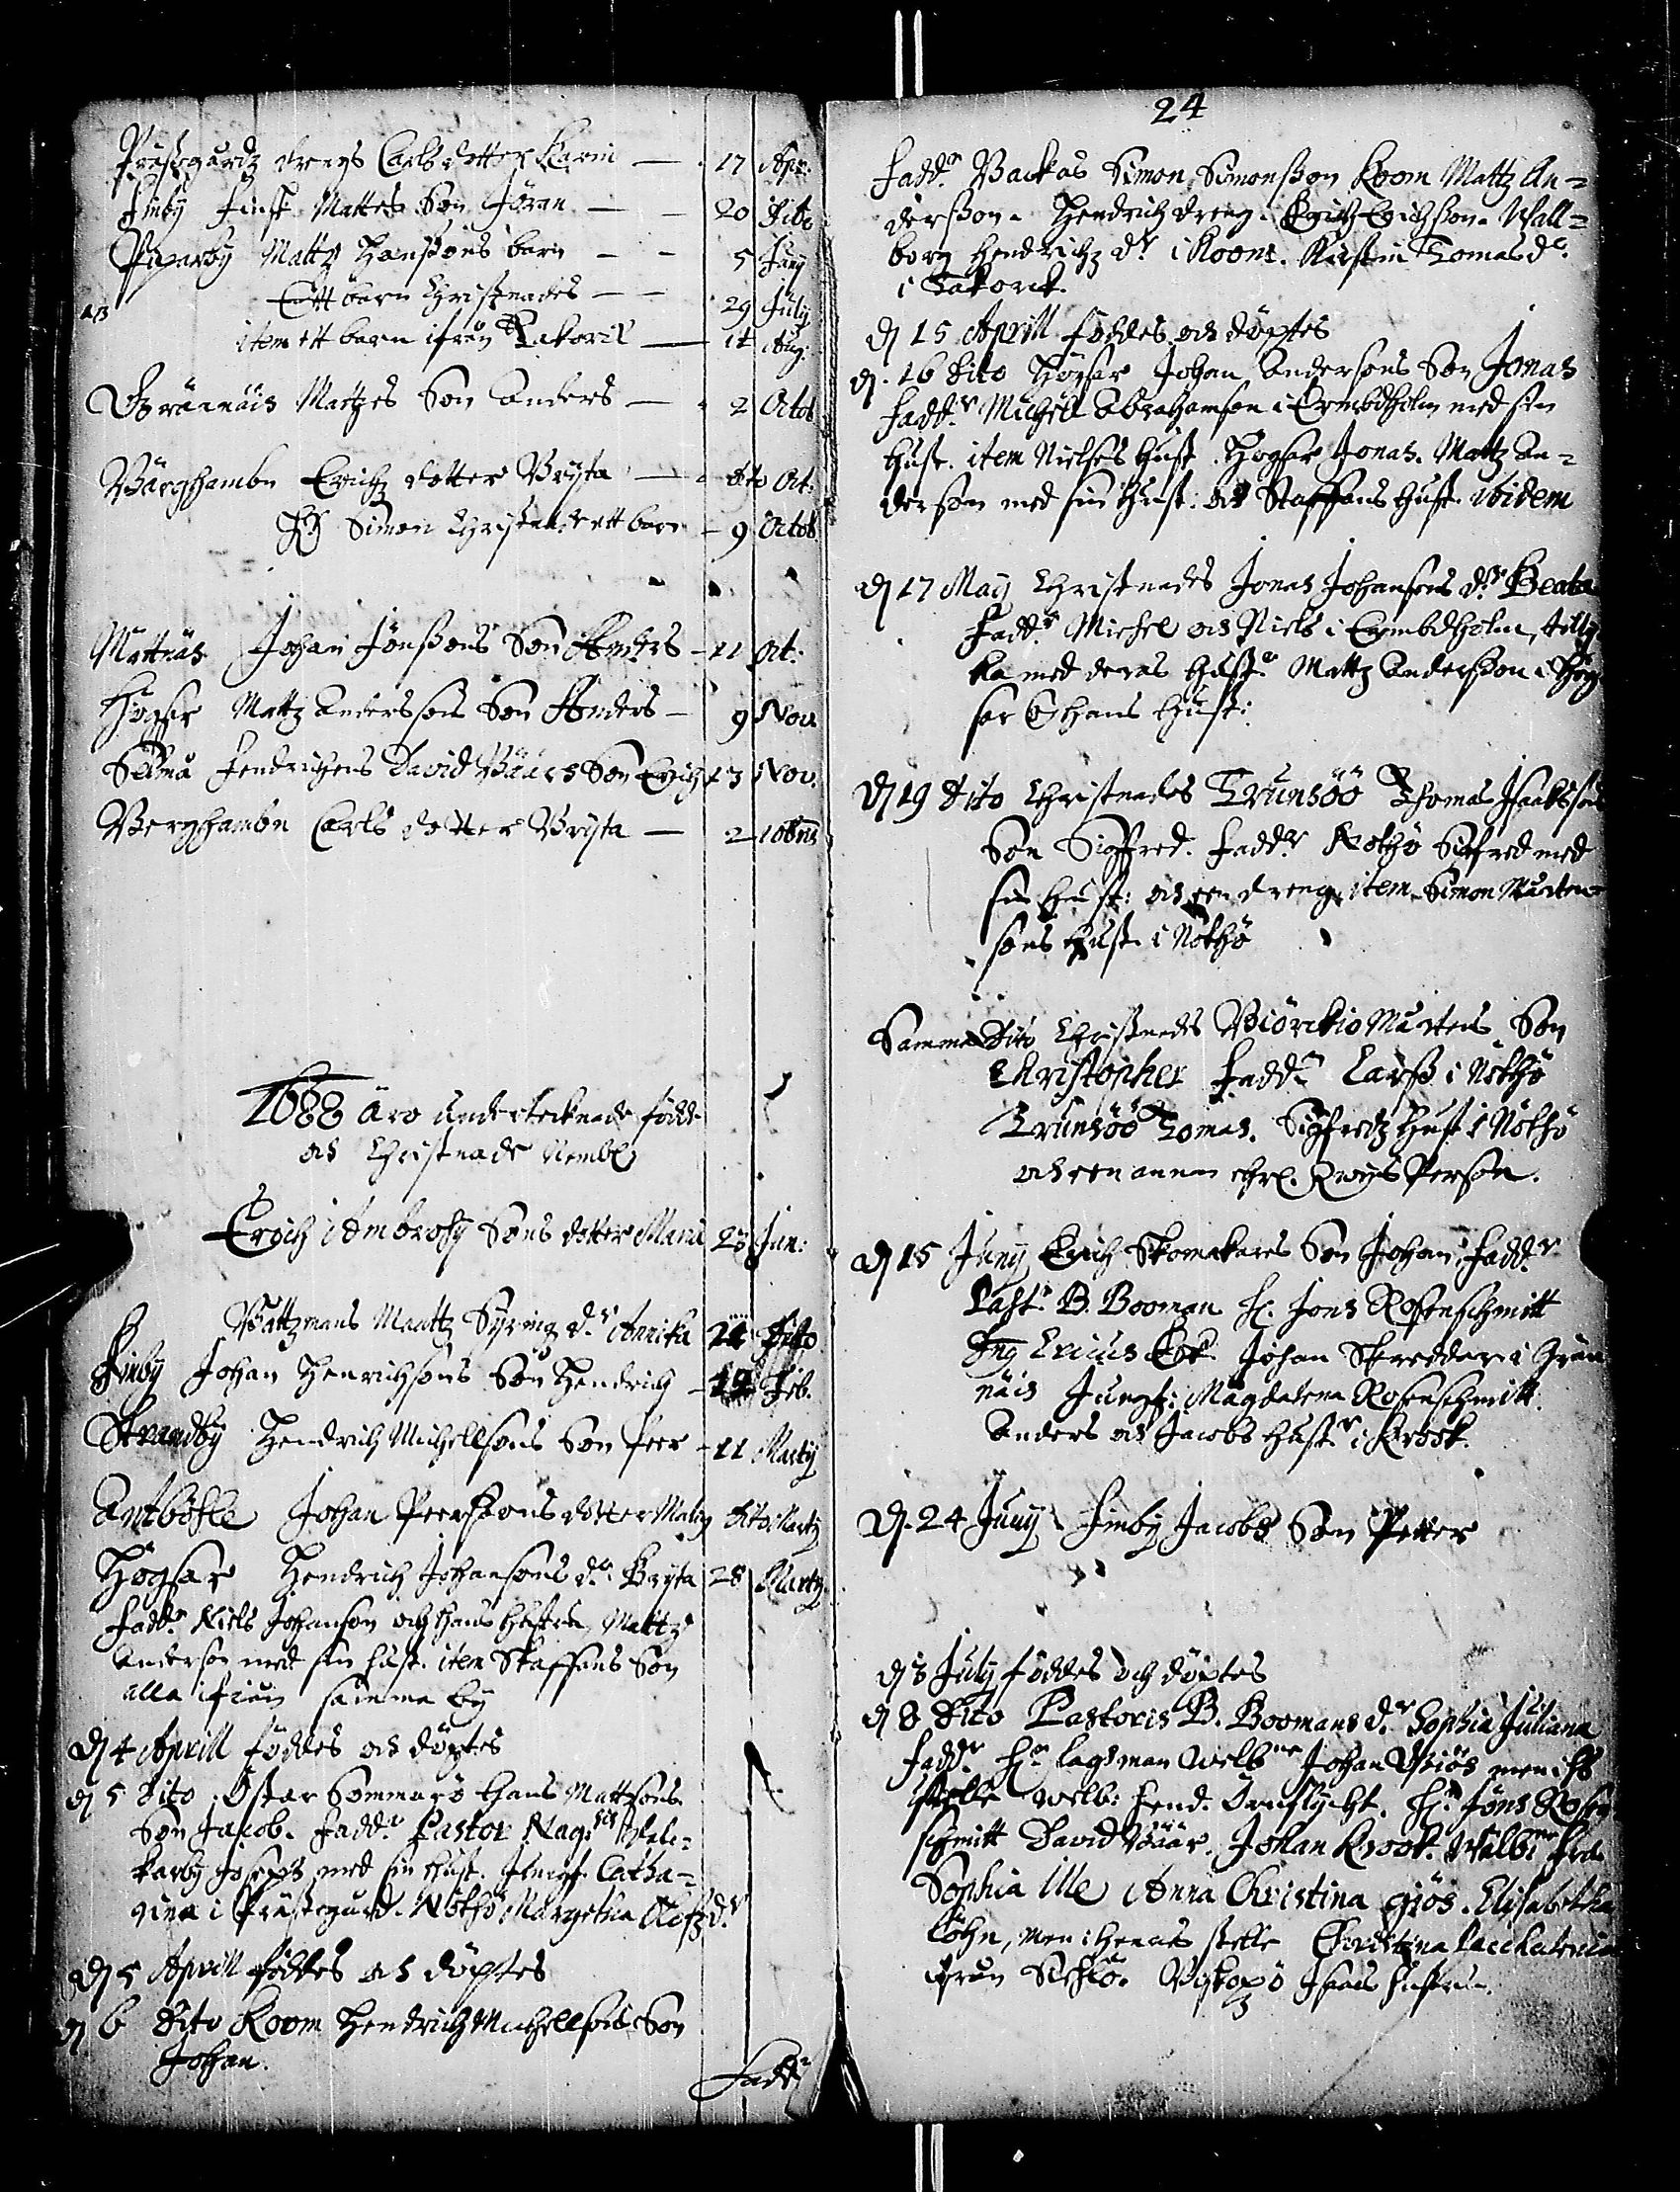 Prästgårdz drengs Carls dotter Karin — 17 Apr:
Finby Finst Mattes Son Jöran — 20 Dito
Piparby Mattz Hanssons barn — 5 Junij
Ett barn Christnades — 29 Julij
item ett barn ifrån — 14 Aug:
Grännäis Mattzes Son Anders — 2 Octob
Bärghambn Erichz dotter Brijta — dito Oct:
H Simon Christnade ett barn — 9 Octob.
Mattnäs Johan Jönssons Son Anders — 11 Oct:
Högsar Mattz Anderssons Son Anders — 9 Nov.
Sellmå Hendrichens David Bäärs Son Erich 13 Nov.
Berghambn Carls dotter Brijta — 2 10bris
1688 äro underteknade födde
och Christnade Nembl
Erich Ambrosij Sons dotter Maria 23 Jan:
Båttzmans Mattz d.r Annika 24 Dito
Finby Johan Henrichsons Son Hendrich — 12 Feb.
Strandby Hendrich Michellsons Son Peer — 11 Martij
Antböhle Johan Peerssons dotter Malin dito Martij
Högsar Hendrich Johansons d.r Brijta 28 Martij
Fadd.r Niels Johanson och hans hustru, Mattz
Anderson med sin hust. item Staffans Son
alla ifrån samma by
Dj 4 Aprill föddes och döptes
dj 5 Dito Östar Sommarö Hans Mattsons
Son Jacob. Fadd.r Pastor Nag:
karby Joseph med sin hust. Jungf. Catha=
rina i Prästegård. Nöthö Margetha Olofz d.r
Dj 5 Aprill föddes och döptes
dj 6 Dito Room Hendrich Michellsons Son
Johan.
Fadd.r
24
Fadd.r Backas Simon Simonsson Room Mattz An=
dersson. Hendrich dreng. Erich Erichsson. Wall=
borg Hendrichz d.r i Room. Kirstin Tomas d.r
i
dj 15 Aprill föddes och döptes
dj. 16 Dito Högsar Johan Andersons Son Jonas
Fadd.r Michell Abrahamson i Ernholm med sin
hust. item Nielses hust. Högsar Jonas. Mattz An=
derson med sin hust: och Staffans hust. ibidem
dj 17 Maij Christnades Jonas Johansons d.r Beata
Fadd.r Michel och Niels i Ernholm, tilly
ka med deras hust.r Mattz Andersson i Hög
sar och hans hust:
Dj 19 Dito Christnades Trunsöö Thomas Isaksons
Son Sigfred. Fadd.r Nöthö Sigfred med
sin hust: och een dreng, item Simon Mårten
sons hust. i Nöthö
Samma Dito Christnades Biörckio Mårtens Son
Christopher Fadd.r Larss i Nöthö
Trunsöö Tomas. Sigfredz hust i Nöthö
och een annan Person.
Dj 15 Junij Erich Skomakares Son Johan. Fadd.r
Past.r B. Booman H. Jöns Rosenschmitt
Ericus Ek. Johan Skreddare i Grän
näis Jungf: Magdalena Rosenschmitt
Anders och Jacobs hust.r i Krook.
Dj. 24 Junij Finby Jacobs Son Petter
dj 3 Julij föddes och döptes
dj 8 Dito Pastoris B. Boomans d.r Sophia Juliana
Fadd.r H.r Lagsman Welb.ne Johan Giös men i hs
ställe Welb: Hend. Örnflycht. H.r Jöns Rosen
schmitt David Bäär. Johan Krook. Wälb.ne Fru
Sophia Ule Anna Christina Giös. Elisabetha
Löhn, men i hennes stelle Christina
ifrån Isaacs hustru.